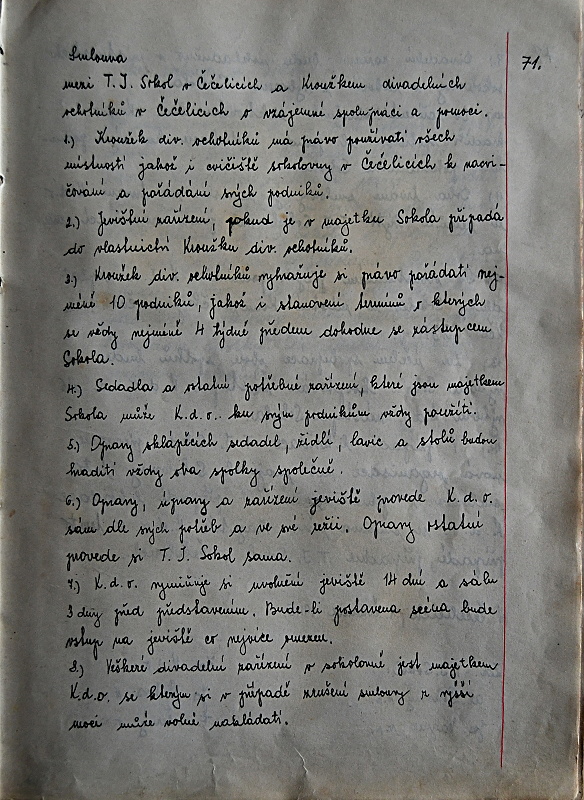 Smlouva
71.
mezi T. J. Sokol v Čečelicích a Kroužkem divadelních
ochotníků v Čečelicích o vzájemné spolupráci a pomoci.
1.) Kroužek div. ochotníků má právo používati všech
místností jakož i cvičiště sokolovny v Čečelicích k nacvi-
čování a pořádání svých podniků.
2.) Jevištní zařízení, pokud je v majetku Sokola připadá
do vlastnictví Kroužku div. ochotníků.
3.) Kroužek div. ochotníků vyhražuje si právo pořádati nej-
méně 10 podniků, jakož i stanovení termínů o kterých
se vždy nejméně 4 týdně předem dohodne se zástupcem
Sokola.
4.) Sedadla a ostatní potřebné zařízení, které jsou majetkem
Sokola může K.d.o. ku svým podnikům vždy použíti.
5.) Opravy sklápěcích sedadel, židlí, lavic a stolů budou
hraditi vždy oba spolky společně.
6.) Opravy, úpravy a zařízení jeviště provede K.d.o.
sám dle svých potřeb a ve své režii. Opravy ostatní
provede si T. J. Sokol sama.
7.) K.d.o. vymiňuje si uvolnění jeviště 14 dní a sálu
3 dny před představením. Bude-li postavena scéna bude
vstup na jeviště co nejvíce omezen.
8.) Veškeré divadelní zařízení v sokolovně jest majetkem
K.d.o. se kterým si v případě zrušení smlouvy z vyšší
moci může volně nakládati.